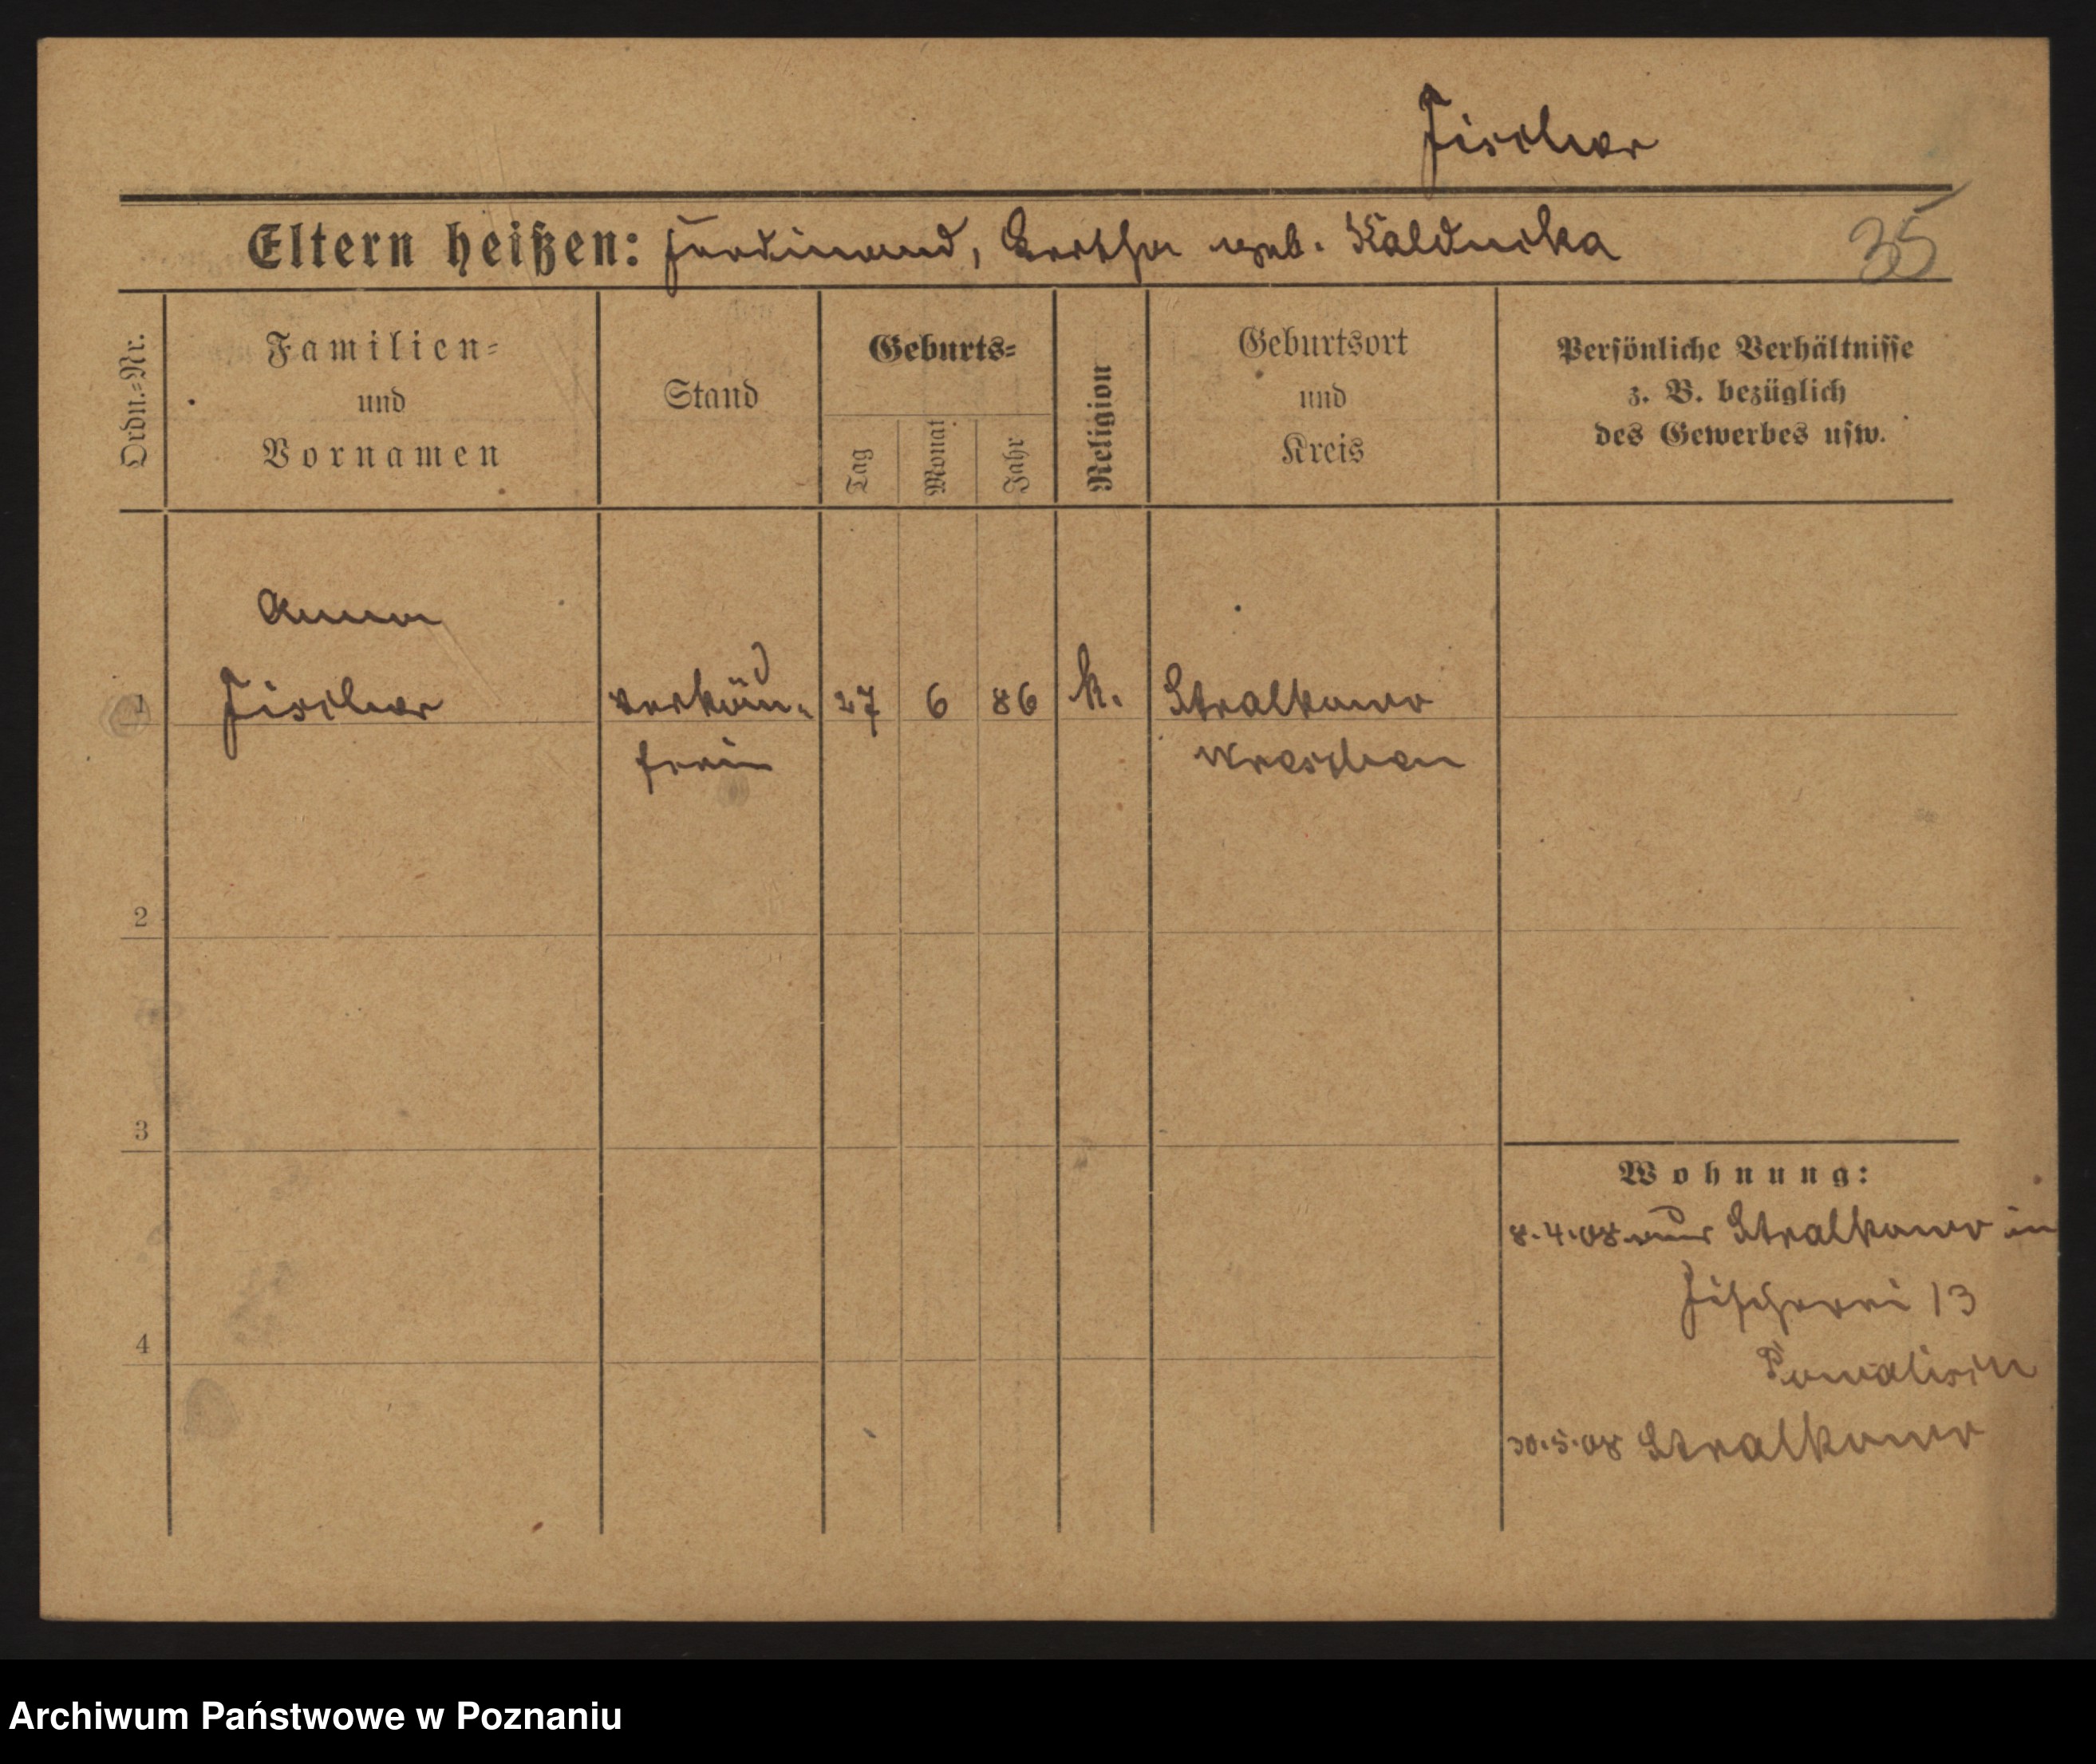 Fischer
Eltern heißen: Ferdinand, Bertha geb. Kaldncka
35
Ordn.-Nr.
Familien-
und
Vornamen
Stand
Geburts-
Tag
Monat
Jahr
Religion
Geburtsort
und
Kreis
Persönliche Verhältnisse
z. B. bezüglich
des Gewerbes usw.
Anna
1 Fischer verkäu- 27 6 86 k. Stralkowo
ferin Wreschen
2
3
4
Wohnung:
8.4.08 aus Stralkowo in
Fischerei 13
30.5.08 Stralkowo
Archiwum Państwowe w Poznaniu